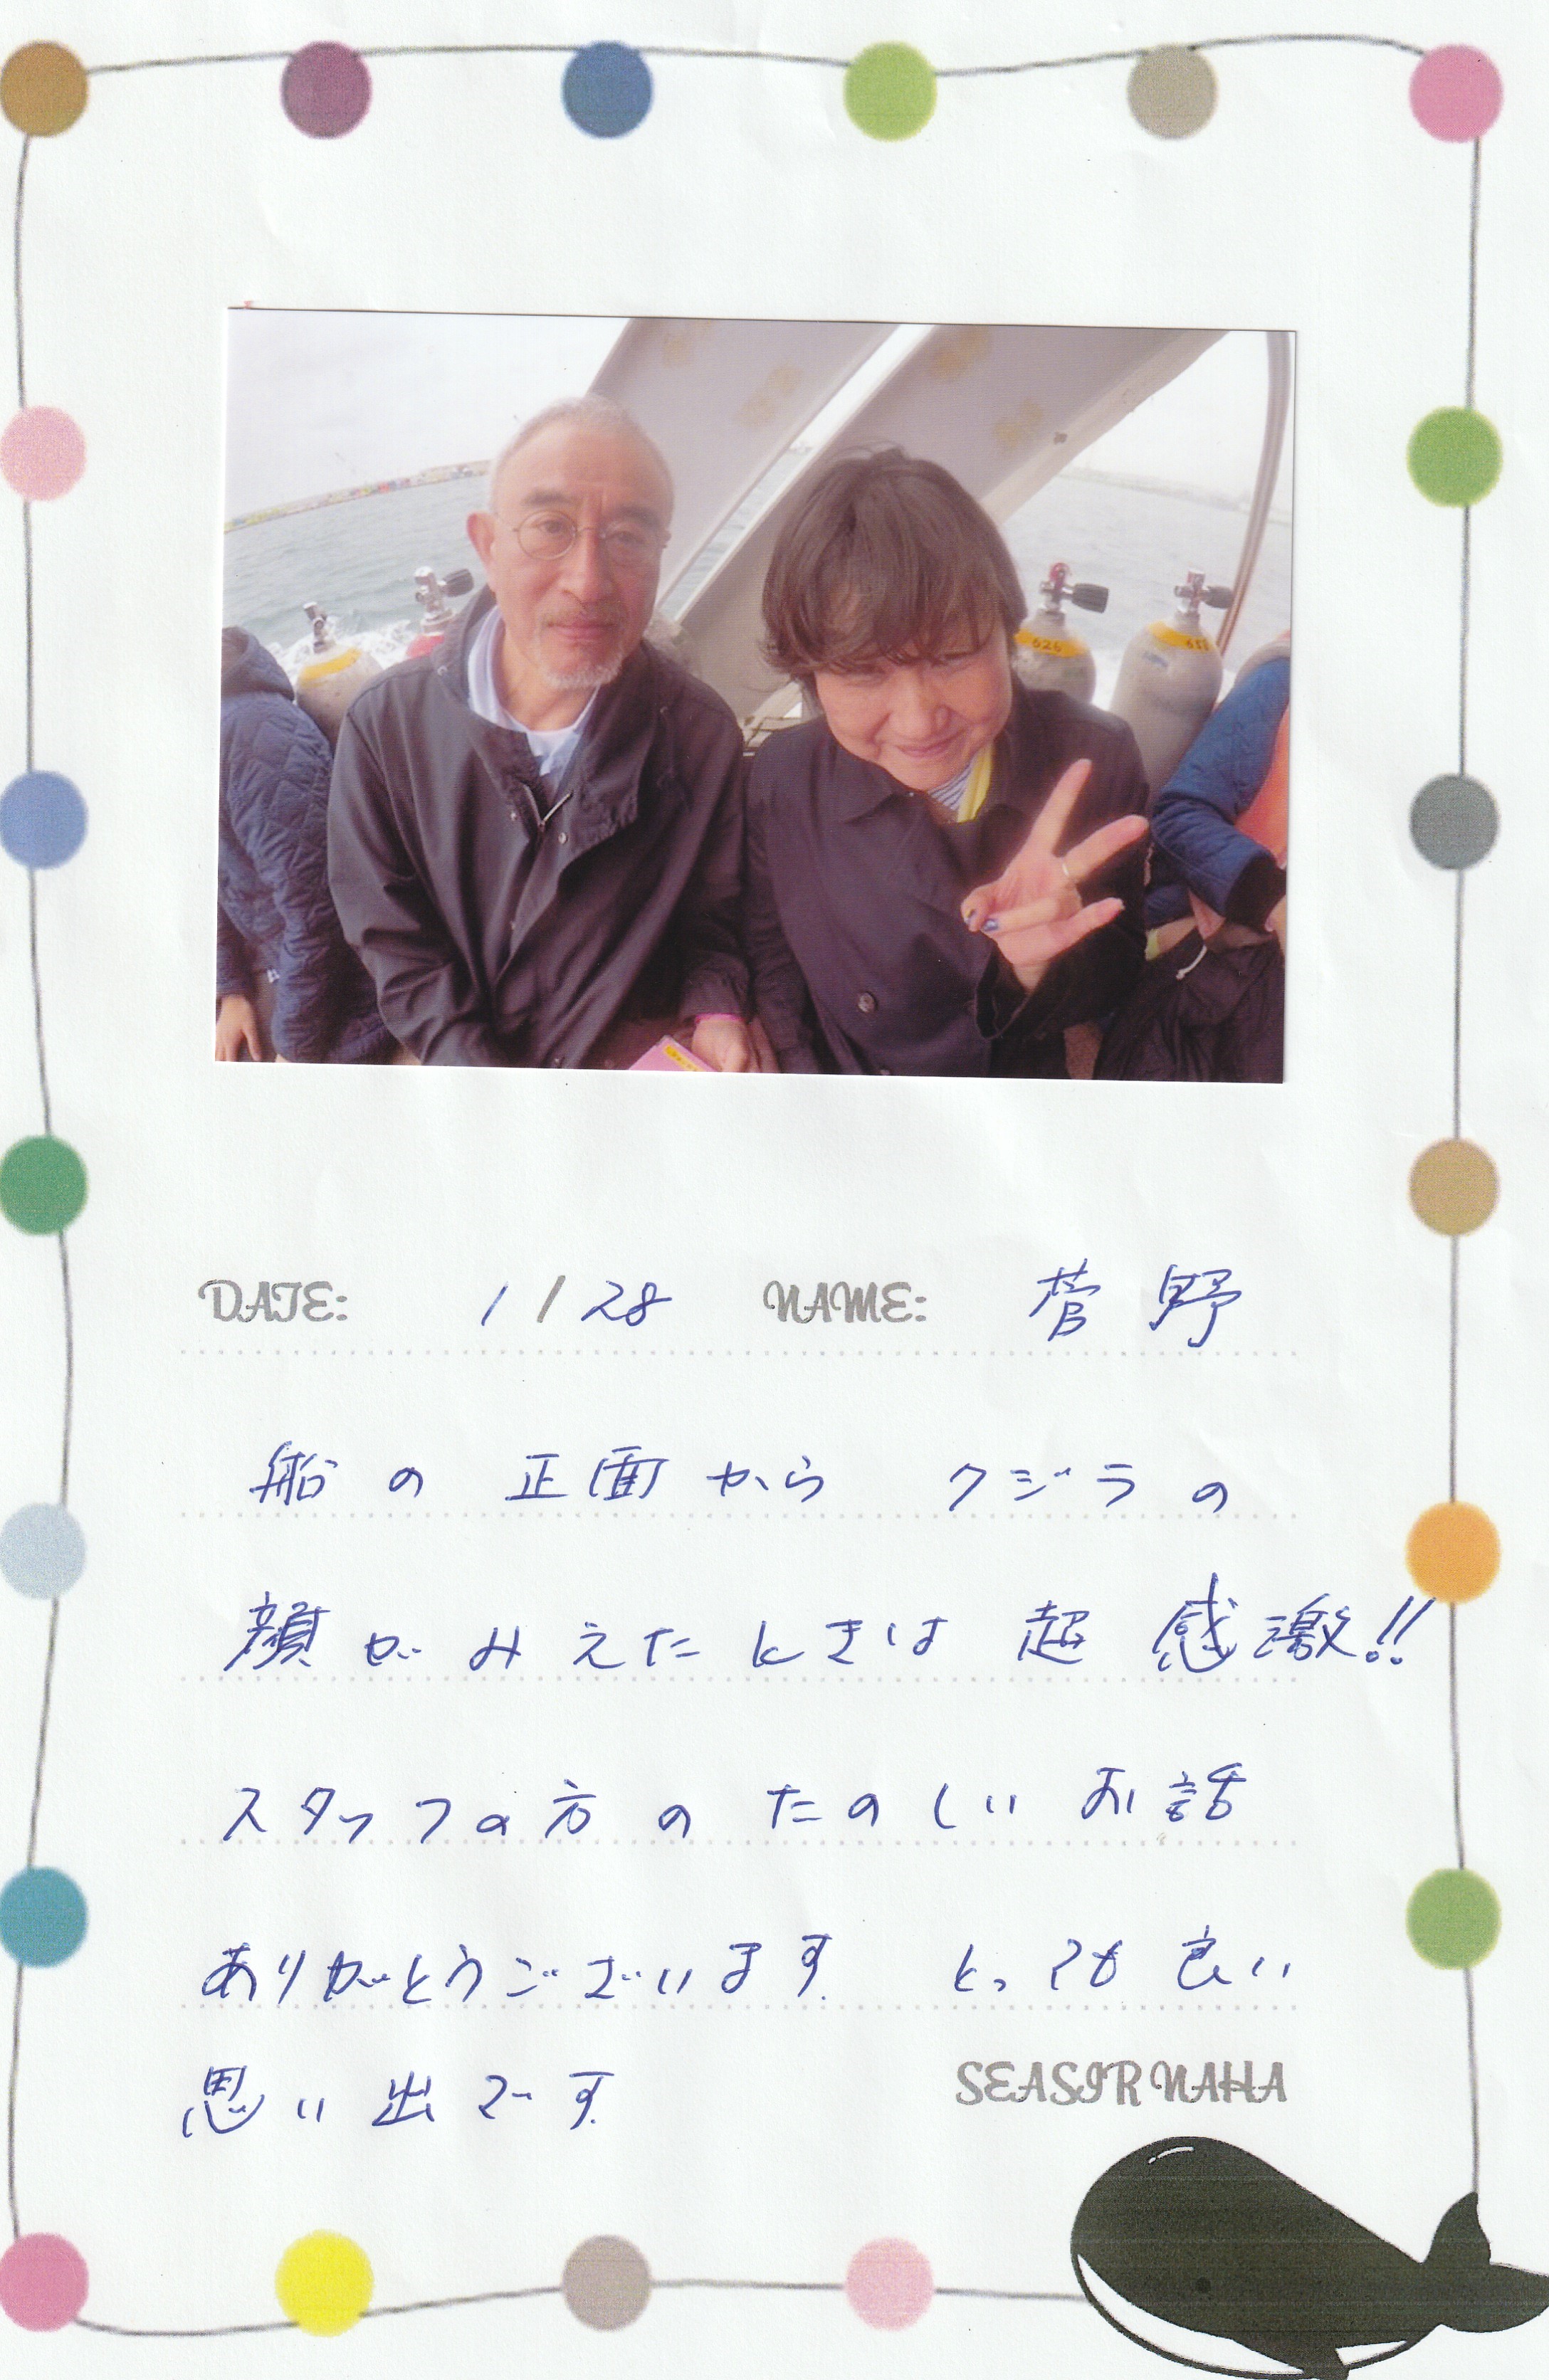 626
DATE: 1/28 NAME: 菅野
船の正面からクジラの
顔がみえたときは超感激!!
スタッフの方のたのしいお話
ありがとうございます とっても良い
思い出です
SEASIR NAHA